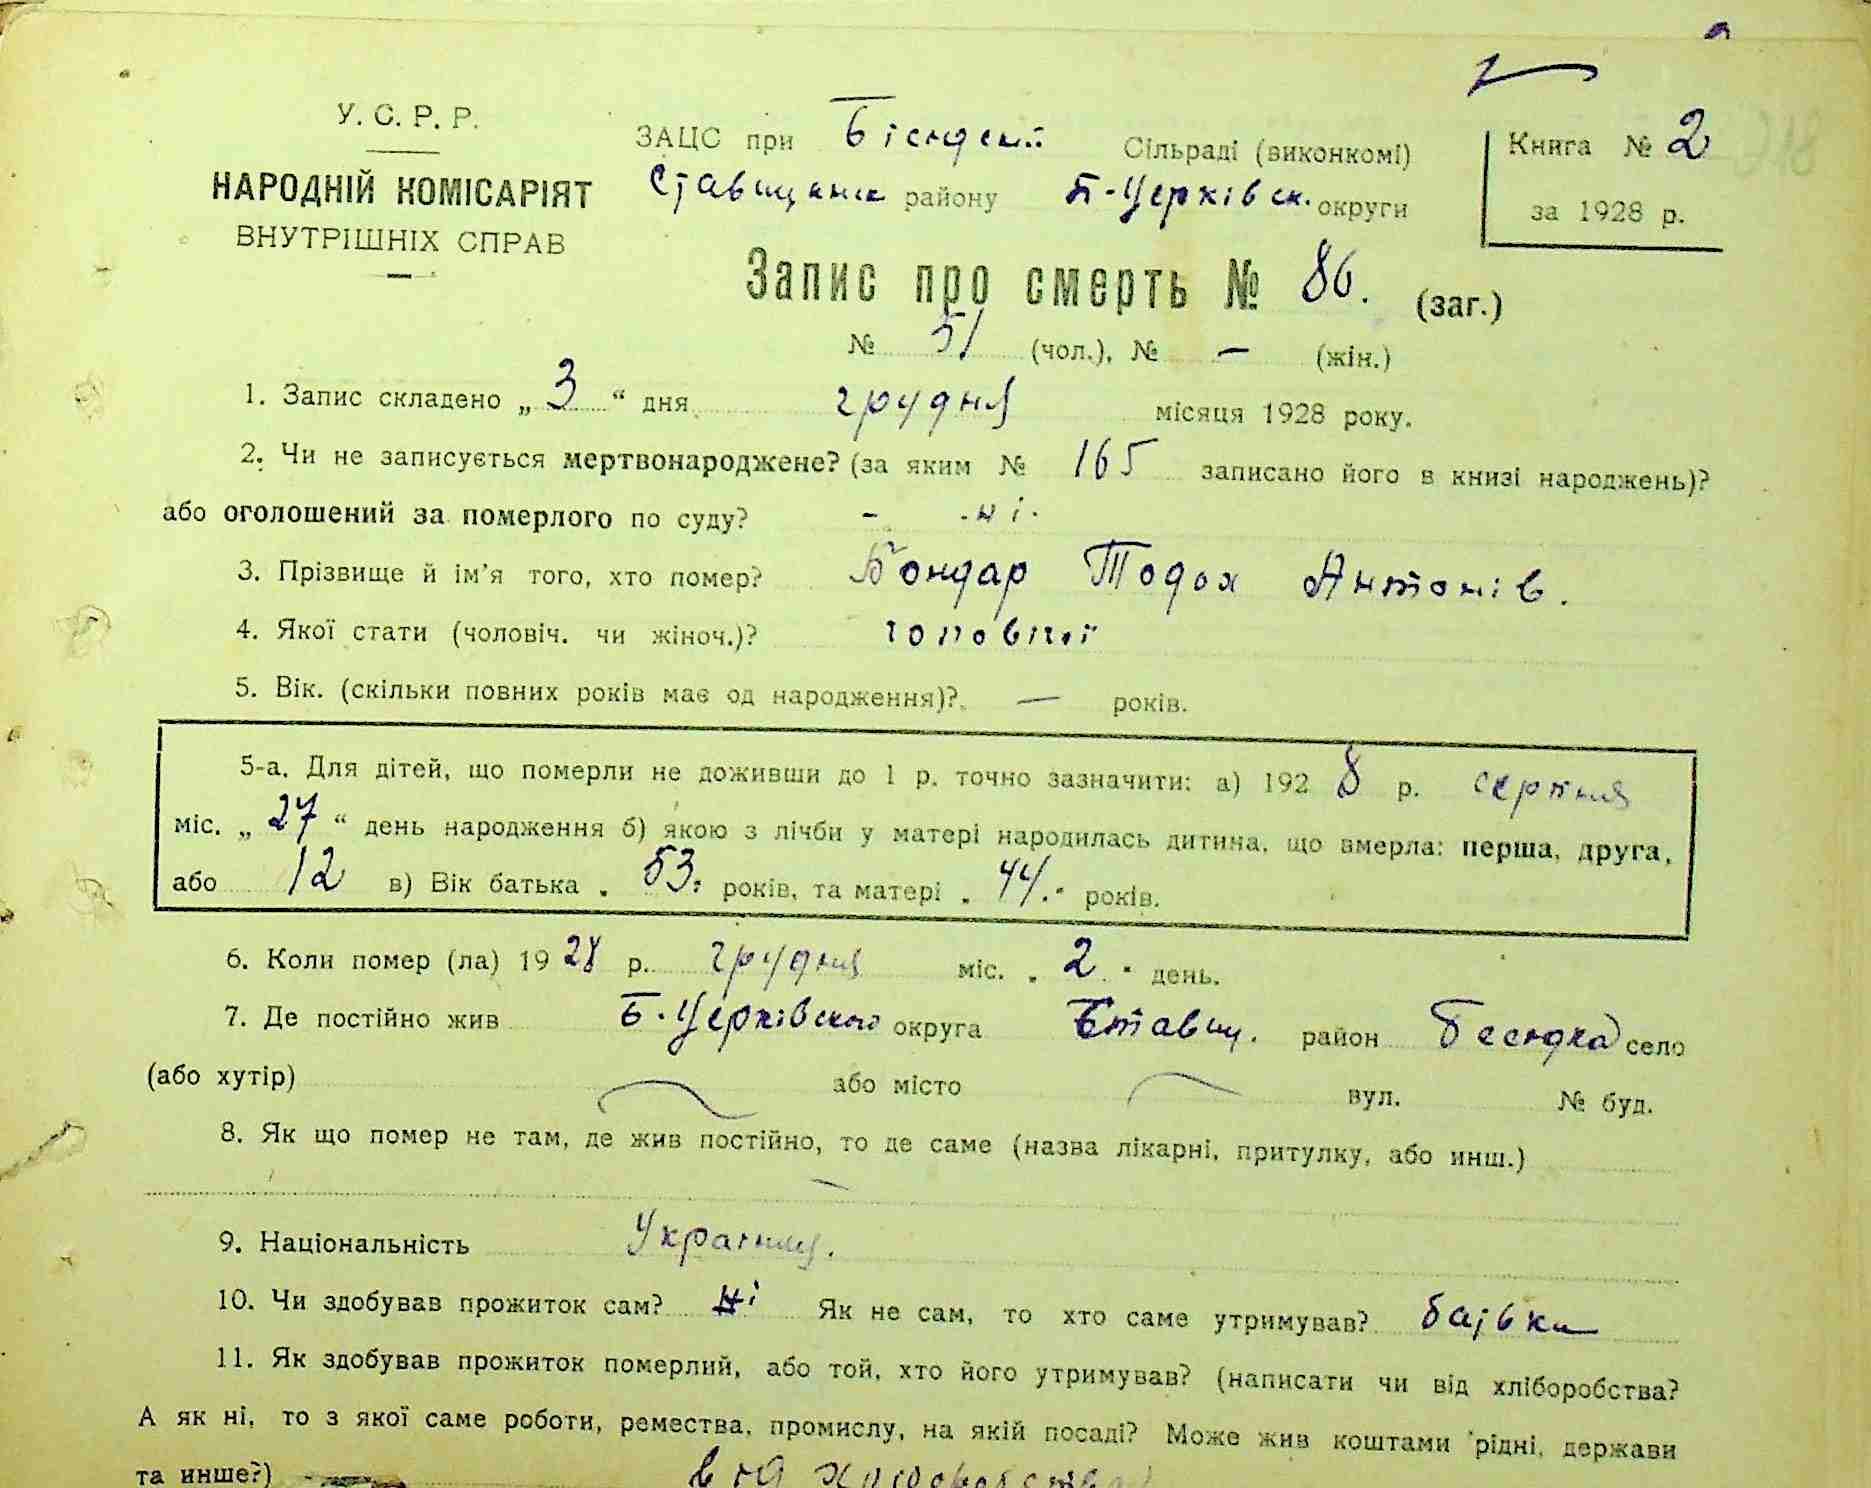 У. С. Р. Р.
НАРОДНІЙ КОМІСАРІЯТ
ВНУТРІШНІХ СПРАВ
ЗАЦС при Бісюдській Сільраді (виконкомі)
Ставищанськ району Б-Церківськ. округи
Книга № 2
за 1928 р.
Запис про смерть № 86. (заг.)
№ 51 (чол.), № — (жін.)
1. Запис складено „3“ дня грудня місяця 1928 року.
2. Чи не записується мертвонароджене? (за яким № 165 записано його в книзі народжень)?
або оголошений за померлого по суду? - ні.
3. Прізвище й ім'я того, хто помер? Бондар Тодох Антонів.
4. Якої стати (чоловіч. чи жіноч.)? чоловічої
5. Вік. (скільки повних років має од народження)? — років.
5-а. Для дітей, що померли не доживши до 1 р. точно зазначити: а) 1928 р. серпня
міс. „27“ день народження б) якою з лічби у матері народилась дитина, що вмерла: перша, друга,
або 12 в) Вік батька „53“ років, та матері „44“ років.
6. Коли помер (ла) 1928 р. грудня міс. „2“ день.
7. Де постійно жив Б.Церківського округа Ставищ. район Бесюдка село
(або хутір) або місто вул. № буд.
8. Як що помер не там, де жив постійно, то де саме (назва лікарні, притулку, або инш.)
—
9. Національність Українц.
10. Чи здобував прожиток сам? ні Як не сам, то хто саме утримував? батьки
11. Як здобував прожиток померлий, або той, хто його утримував? (написати чи від хліборобства?
А як ні, то з якої саме роботи, ремества, промислу, на якій посаді? Може жив коштами рідні, держави
та инше?) від хліборобства